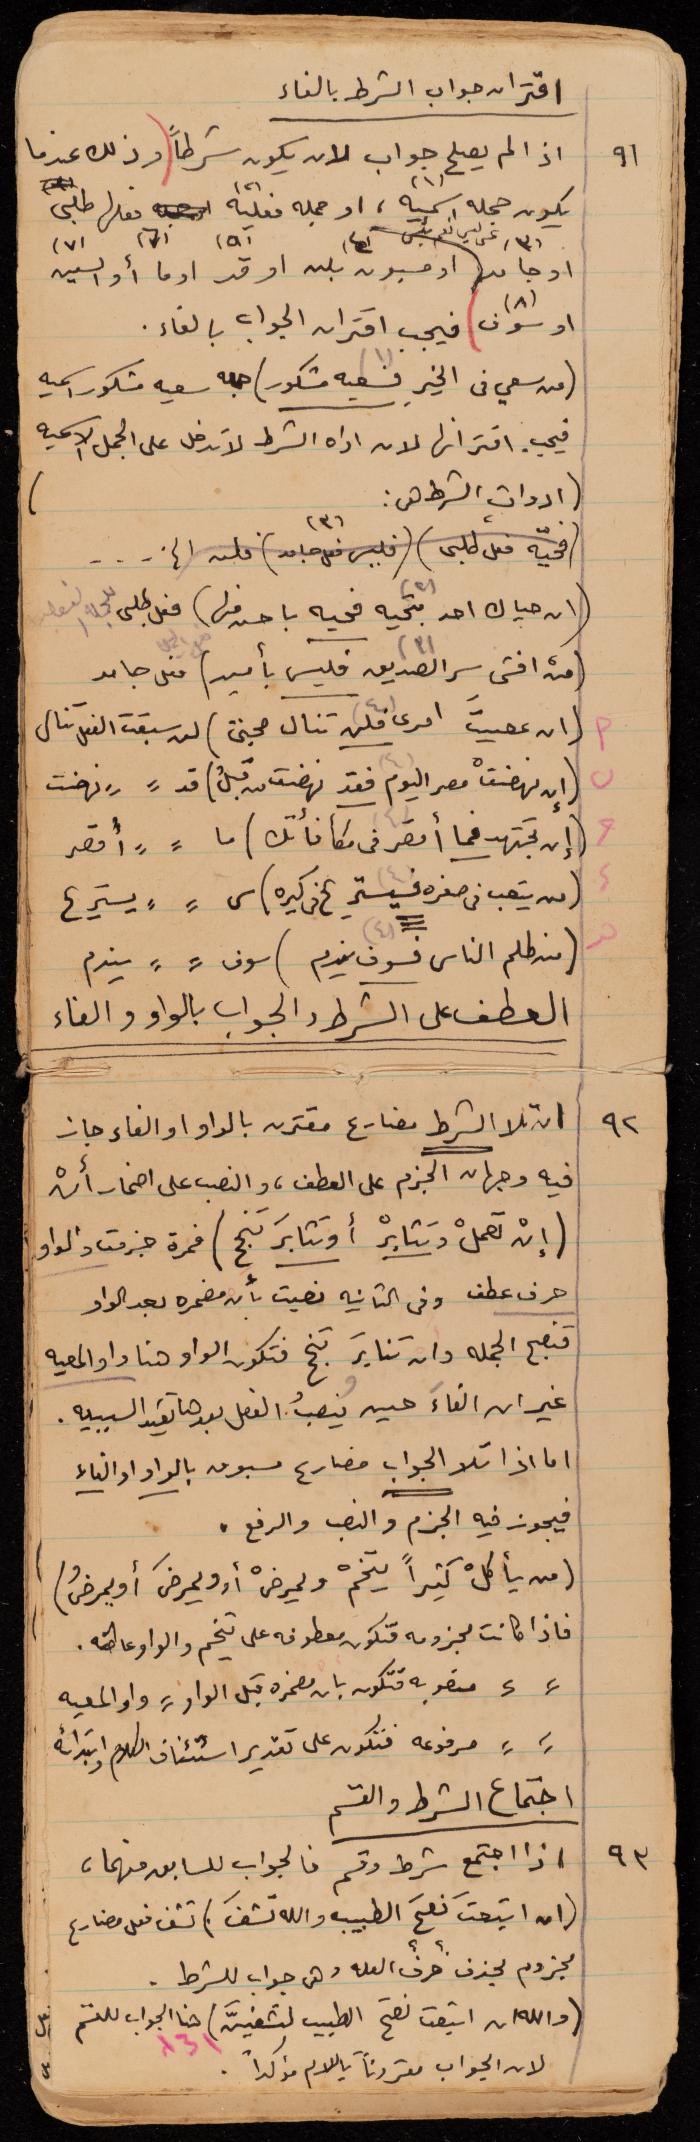 اقتران جواب الشرط بالفاء
٩١ اذا لم يصلح جواب لان يكون شرطاً (وذلك عندما
يكون جمله اسمية (١) ، او جمله فعلية (٢) فعلها طلبي
او جامد (٣) او مسبوق بلن (٤) او قد (٥) او ما (٦) أو السين (٧)
او سوف (٨) ) فيجب اقتران الجواب بالفاء .
(من سعي فى الخير فسعيه مشكور) (١) جمله سعيه مشكور اسميه
فيجب اقترانها لان اداه الشرط لا تدخل على الجمل الاسميه
(ادوات الشرط هى : )
(فحيّه فعل طلبى) (فليس فعل جامد) (٣) فلن الخ . . . .
(ان حياك احد بتحيه فحيه باحسن منها) (٢) فعل طلبى
(من افشى سر الصديق فليس بأمين) (٣) فعل جامد
م (ان عصيتَ امرى فلن تنال محبتى) (٤) لن سبقت الفعل تنال
ن (إن نهضتْ مصر اليوم فقد نهضت من قبلُ) (٤) قد 〃 〃 نهضت
ع (إن تجتهد فما أقصر فى مكافأتك) (٤) ما 〃 〃 أقصر
ع (من يتعب فى صغره فسيستريح فى كبره) (٤) س 〃 〃 يستريح
هـ (من ظلم الناس فسوف يندم) (٤) سوف 〃 〃 يندم
العطف على الشرط والجواب بالواو والفاء
٩٢ ان تلا الشرط مضارع مقترن بالواو او الفاء جاز
فيه وجهان الجزم على العطف ، والنصب على اضمار أنْ
(إنْ تعملْ وتثابرْ أو تثابرَ تنجح) فمرة جزمت والواو
حرف عطف وفى الثانيه نصبت بأن مضمره بعد الواو
فتصبح الجمله وان تثابرَ تنجح فتكون الواو هنا واو المعيه
غير ان الفاءَ حين يُنصبُ الفعل بعدها تفيد السببيه .
اما اذا تلا الجواب مضارع مسبوق بالواو او الفاء
فيجوز فيه الجزم والنصب والرفع .
(من يأكلْ كثيراً يتخمْ ويمرضْ أو ويمرضَ أو يمرضُ)
فاذا كانت مجزومه فتكون معطوفه على يتخم والواو عاطفه .
〃 〃 منصوبه فتكون بان مضمره قبل الواو 〃 واو المعيه
〃 〃 مرفوعه فتكون على تقدير استئناف الكلام وابتدائه
اجتماع الشرط والقسم
٩٣ اذا اجتمع شرط وقسم فالجواب للسابق منهما ،
(ان اتبعتَ نصحَ الطبيب والله تشفَ) تشف فعل مضارع
مجزوم بحذف حرف العله وهى جواب للشرط .
(والله ان اتبعت نصح الطبيب لتشفينَّ) هنا الجواب للقسم
لان الجواب مقروناً باللام مؤكداً .